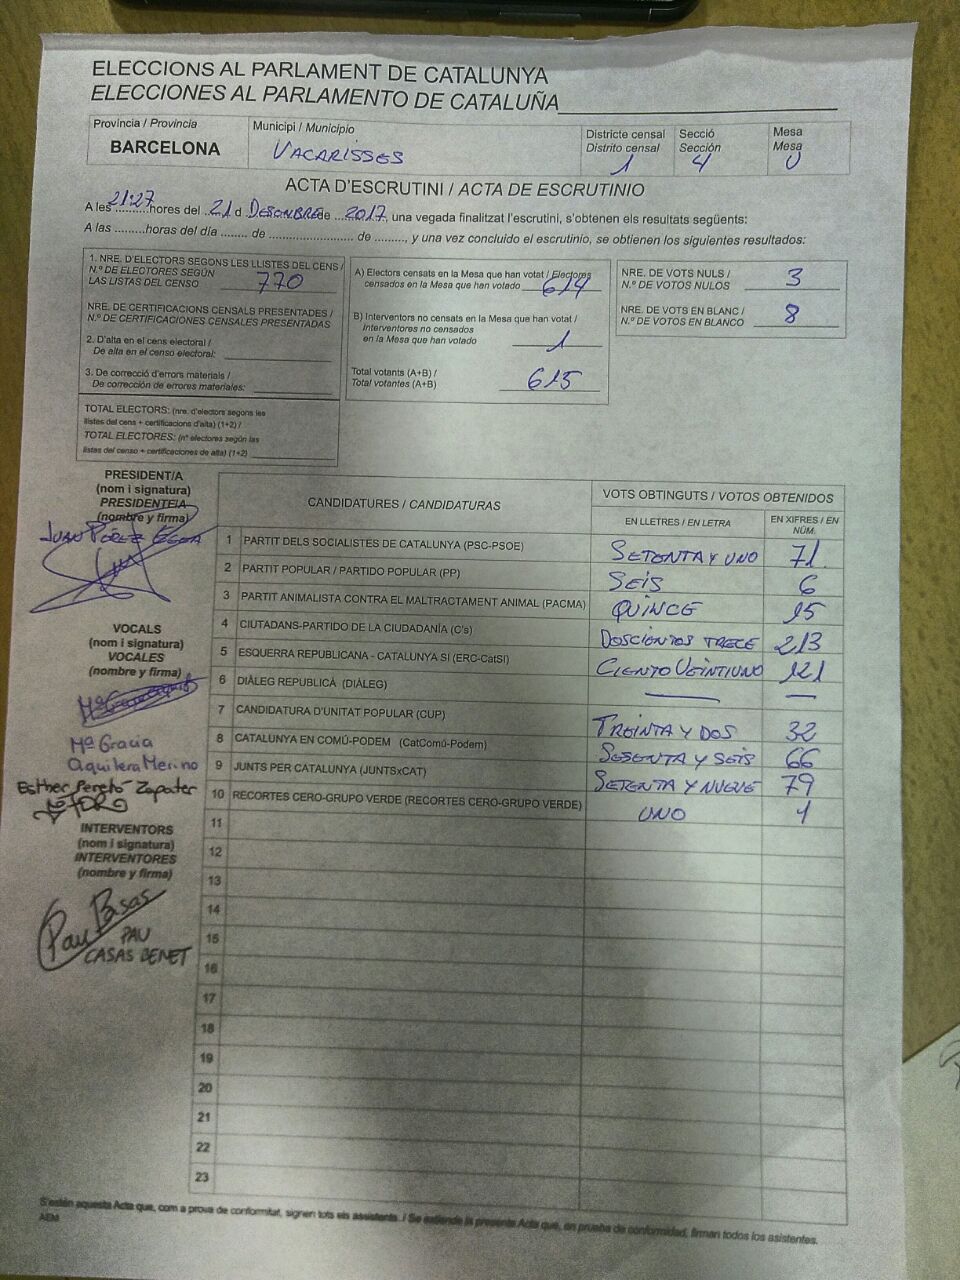 ELECCIONS AL PARLAMENT DE CATALUNYA
ELECCIONES AL PARLAMENTO DE CATALUÑA
Província / Provincia
BARCELONA
Municipi / Municipio
VACARISSES
Districte censal
Distrito censal
1
Secció
Sección
4
Mesa
Mesa
U
ACTA D'ESCRUTINI / ACTA DE ESCRUTINIO
A les 21:27 hores del 21 d DESEMBRE de 2017, una vegada finalitzat l'escrutini, s'obtenen els resultats següents:
A las .........horas del día ........ de ........................ de ........., y una vez concluido el escrutinio, se obtienen los siguientes resultados:
1. NRE. D'ELECTORS SEGONS LES LLISTES DEL CENS /
N.º DE ELECTORES SEGÚN
LAS LISTAS DEL CENSO 770
NRE. DE CERTIFICACIONS CENSALS PRESENTADES /
N.º DE CERTIFICACIONES CENSALES PRESENTADAS
2. D'alta en el cens electoral /
De alta en el censo electoral:
3. De correcció d'errors materials /
De corrección de errores materiales:
TOTAL ELECTORS: (nre. d'electors segons les
llistes del cens + certificacions d'alta) (1+2) /
TOTAL ELECTORES: (nº electores según las
listas del censo + certificaciones de alta) (1+2)
A) Electors censats en la Mesa que han votat / Electores
censados en la Mesa que han votado 614
B) Interventors no censats en la Mesa que han votat /
Interventores no censados
en la Mesa que han votado 1
Total votants (A+B) /
Total votantes (A+B) 615
NRE. DE VOTS NULS /
N.º DE VOTOS NULOS 3
NRE. DE VOTS EN BLANC /
N.º DE VOTOS EN BLANCO 8
PRESIDENT/A
(nom i signatura)
PRESIDENTE/A
(nombre y firma)
VOCALS
(nom i signatura)
VOCALES
(nombre y firma)
Mª Gracia
Aguilera Merino
Esther Zapater
INTERVENTORS
(nom i signatura)
INTERVENTORES
(nombre y firma)
PAU
CASAS BENET
CANDIDATURES / CANDIDATURAS
VOTS OBTINGUTS / VOTOS OBTENIDOS
EN LLETRES / EN LETRA
EN XIFRES / EN NÚM.
1 PARTIT DELS SOCIALISTES DE CATALUNYA (PSC-PSOE) SETENTA Y UNO 71
2 PARTIT POPULAR / PARTIDO POPULAR (PP) SEIS 6
3 PARTIT ANIMALISTA CONTRA EL MALTRACTAMENT ANIMAL (PACMA) QUINCE 15
4 CIUTADANS-PARTIDO DE LA CIUDADANÍA (C's) DOSCIENTOS TRECE 213
5 ESQUERRA REPUBLICANA - CATALUNYA SÍ (ERC-CatSÍ) CIENTO VEINTIUNO 121
6 DIÀLEG REPUBLICÀ (DIÀLEG) — —
7 CANDIDATURA D'UNITAT POPULAR (CUP) TREINTA Y DOS 32
8 CATALUNYA EN COMÚ-PODEM (CatComú-Podem) SESENTA Y SEIS 66
9 JUNTS PER CATALUNYA (JUNTSxCAT) SETENTA Y NUEVE 79
10 RECORTES CERO-GRUPO VERDE (RECORTES CERO-GRUPO VERDE) UNO 1
11
12
13
14
15
16
17
18
19
20
21
22
23
S'estén aquesta Acta que, com a prova de conformitat, signen tots els assistents. / Se extiende la presente Acta que, en prueba de conformidad, firman todos los asistentes.
AEM